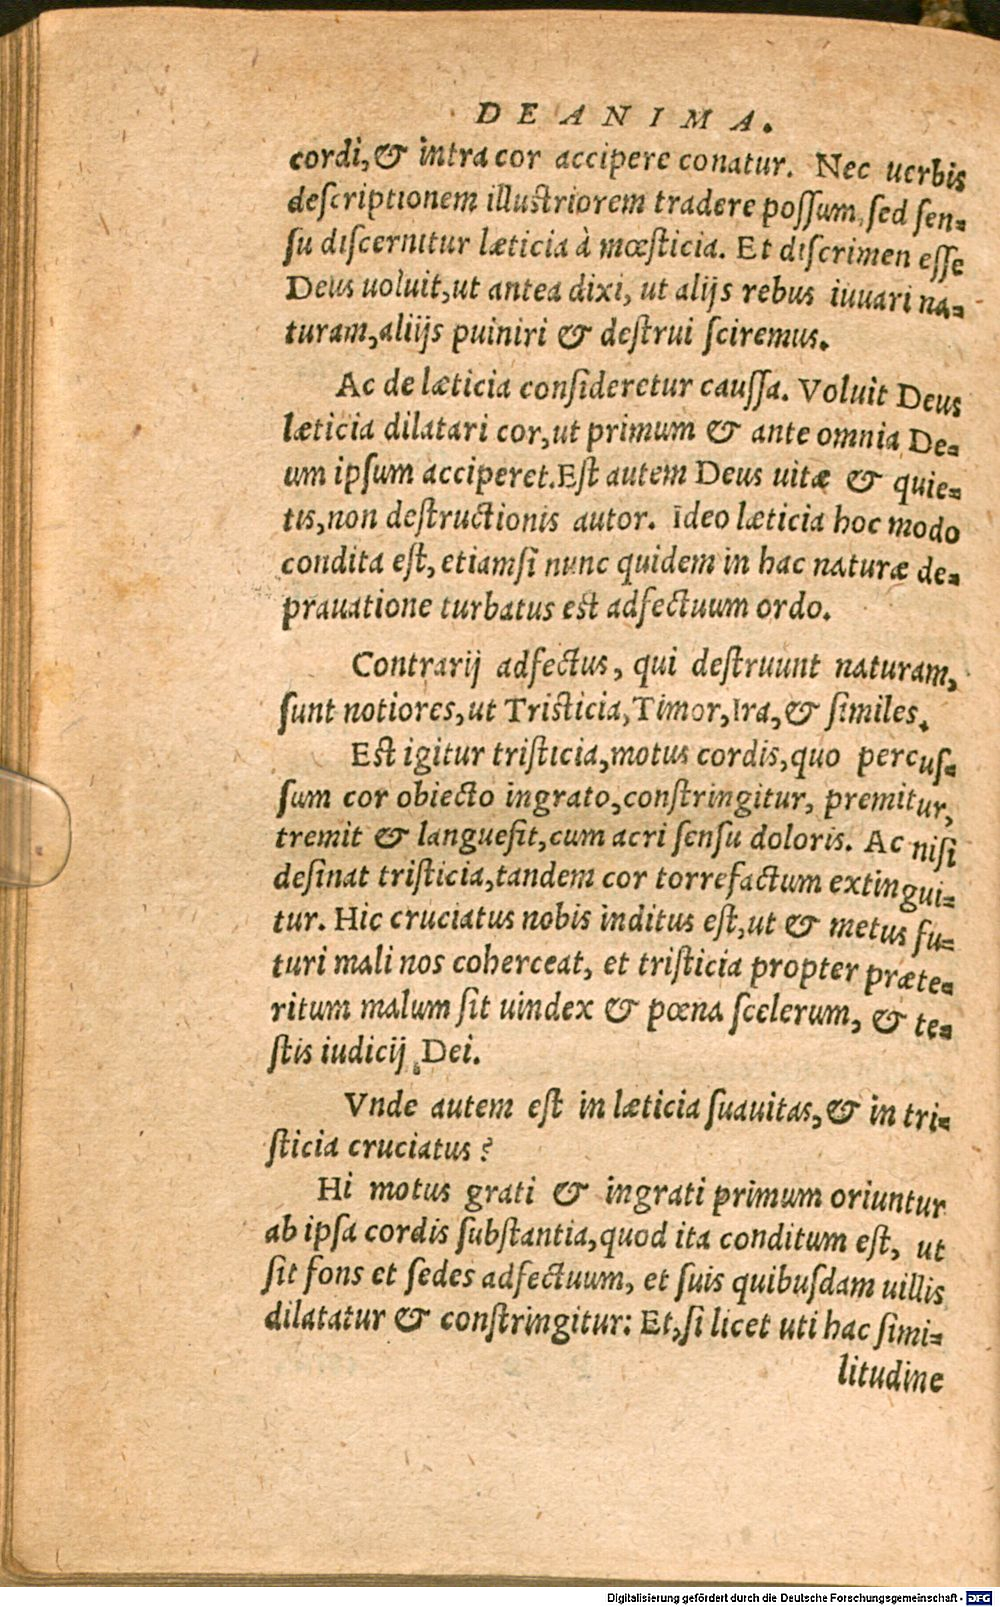 DE ANIMA.
cordi, & intra cor accipere conatur. Nec uerbis
descriptionem illustriorem tradere possum, sed sen-
su discernitur læticia à mœsticia. Et discrimen esse
Deus uoluit, ut antea dixi, ut alijs rebus iuuari na-
turam, aliijs puiniri & destrui sciremus.
Ac de læticia consideretur caussa. Voluit Deus
læticia dilatari cor, ut primum & ante omnia De-
um ipsum acciperet. Est autem Deus uitæ & quie-
tis, non destructionis autor. Ideo læticia hoc modo
condita est, etiamsi nunc quidem in hac naturæ de-
prauatione turbatus est adfectuum ordo.
Contrarij adfectus, qui destruunt naturam,
sunt notiores, ut Tristicia, Timor, Ira, & similes.
Est igitur tristicia, motus cordis, quo percus-
sum cor obiecto ingrato, constringitur, premitur,
tremit & languefit, cum acri sensu doloris. Ac nisi
desinat tristicia, tandem cor torrefactum extingui-
tur. Hic cruciatus nobis inditus est, ut & metus fu-
turi mali nos coherceat, et tristicia propter præte-
ritum malum sit uindex & pœna scelerum, & te-
stis iudicij Dei.
Vnde autem est in læticia suauitas, & in tri-
sticia cruciatus?
Hi motus grati & ingrati primum oriuntur
ab ipsa cordis substantia, quod ita conditum est, ut
sit fons et sedes adfectuum, et suis quibusdam uillis
dilatatur & constringitur: Et, si licet uti hac simi-
litudine
Digitalisierung gefördert durch die Deutsche Forschungsgemeinschaft - DFG